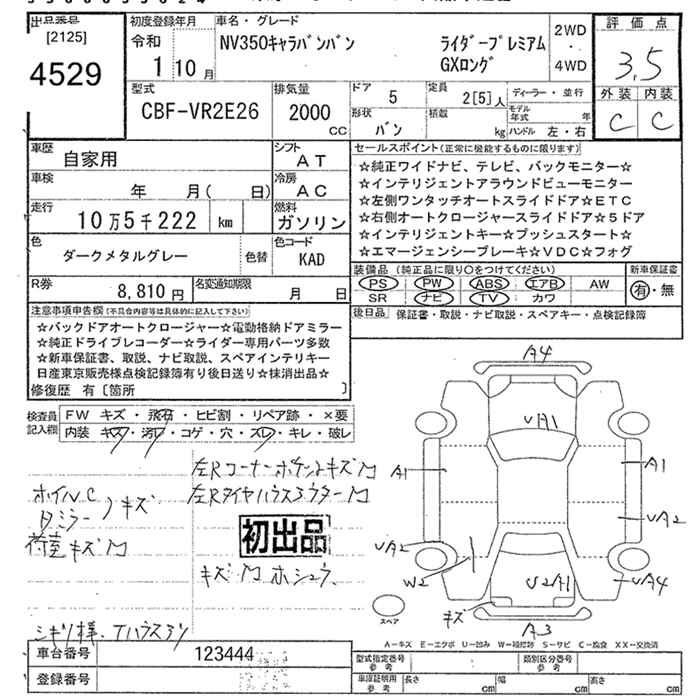 出品番号
[2125]
4529
初度登録年月
令和
1 10 月
車名・グレード
NV350キャラバンバン
ライダープレミアム
GXロング
2WD
・
4WD
評価点
3.5
外装 内装
C C
型式
CBF-VR2E26
排気量
2000
CC
ドア
5
形状
バン
定員
2[5]人
積載
kg
ディーラー・並行
モデル年式 年
ハンドル 左・右
車歴
自家用
シフト
AT
車検
年 月( 日)
冷房
AC
走行
10万5千222 km
燃料
ガソリン
色
ダークメタルグレー
色替
色コード
KAD
R券
8,810円
名変通知期限
月 日
セールスポイント(正常に機能するものに限ります)
☆純正ワイドナビ、テレビ、バックモニター☆
☆インテリジェントアラウンドビューモニター
☆左側ワンタッチオートスライドドア☆ETC
☆右側オートクロージャースライドドア☆5ドア
☆インテリジェントキー☆プッシュスタート☆
☆エマージェンシーブレーキ☆VDC☆フォグ
装備品 (純正品に限り○をつけてください)
PS PW ABS エアB AW
SR ナビ TV カワ
新車保証書
有・無
後日品 保証書・取説・ナビ取説・スペアキー・点検記録簿
注意事項申告欄(不具合内容等は具体的に記入して下さい)
☆バックドアオートクロージャー☆電動格納ドアミラー
☆純正ドライブレコーダー☆ライダー専用パーツ多数
☆新車保証書、取説、ナビ取説、スペアインテリキー
日産東京販売様点検記録簿有り後日送り☆抹消出品☆
修復歴 有〔箇所 〕
検査員記入欄
FW キズ・飛石・ヒビ割・リペア跡・×要
内装 キズ・汚レ・コゲ・穴・スレ・キレ・破レ
左Rコーナーポケットキズ
ホイルC
Dミラー
キズ
左Rタイヤハウス
荷室キズ
初出品
キズ
A4
UA1
A1
A1
UA2
UA2
W2
U2A1
UA4
キズ
A3
スペア
A-キズ E-エクボ U-凹み W-補修跡 S-サビ C-腐食 XX-交換済
車台番号
123444
登録番号
型式指定番号
参考
類別区分番号
参考
車庫証明用
参考
長さ cm
幅 cm
高さ cm